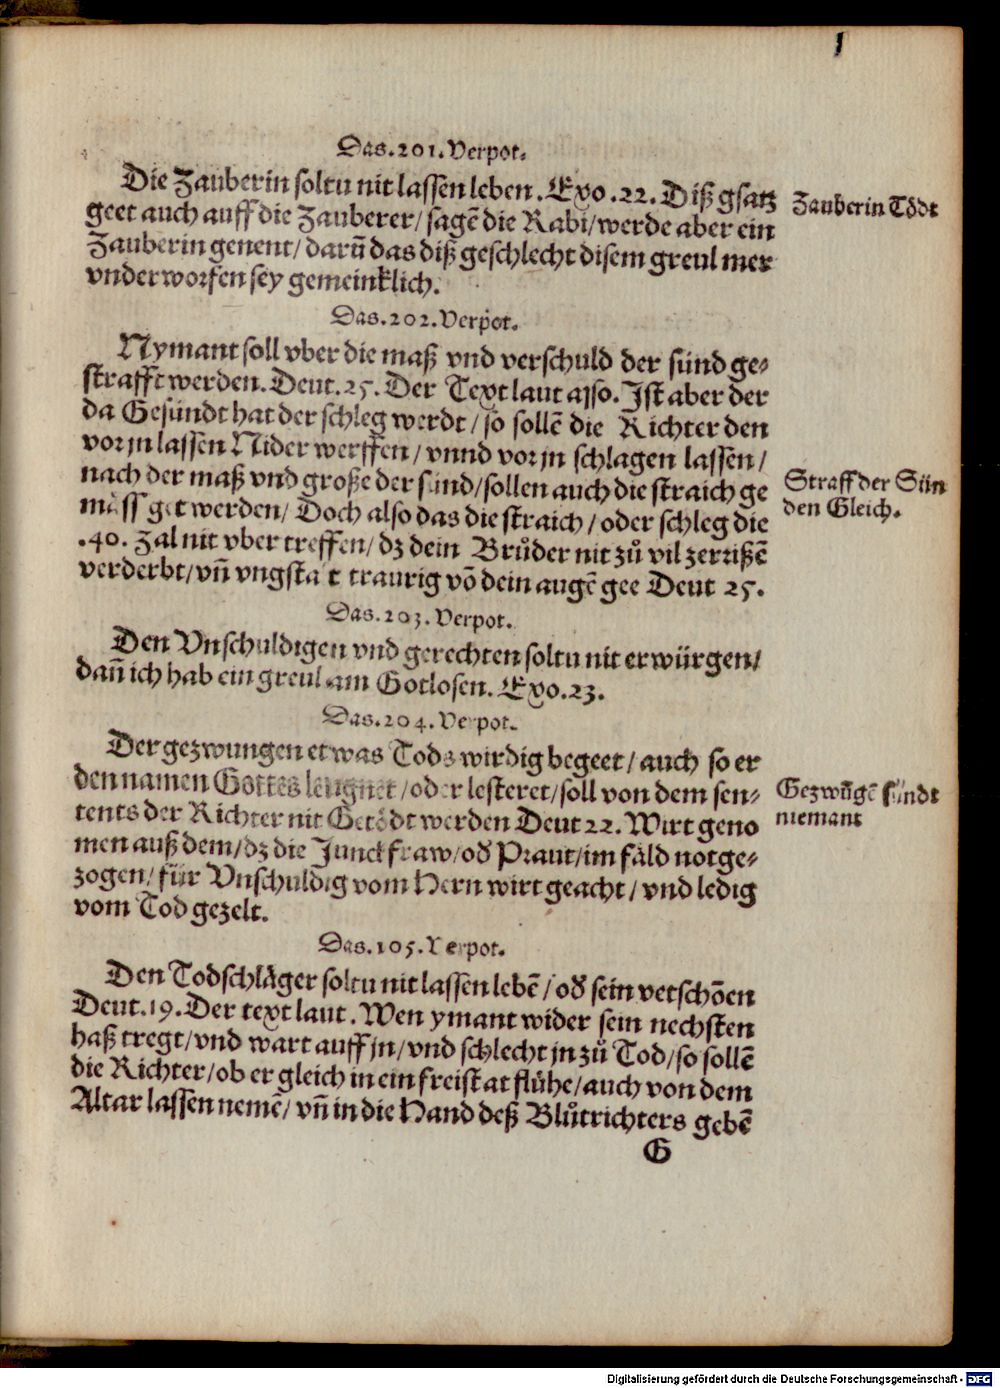 1
Das.201.Verpot.
Die Zauberin soltu nit lassen leben. Exo.22. Diß gsatz
geet auch auff die Zauberer/ sagē die Rabi/ werde aber ein
Zauberin genent/ darū das diß geschlecht disem greul mer
vnderworfen sey gemeinklich.
Zauberin Tödt
Das.202.Verpot.
Nymant soll vber die maß vnd verschuld der sünd ge-
strafft werden. Deut.25. Der Text laut also. Jst aber der
da Gesündt hat der schleg werdt/ so sollē die Richter den
vor jn lassen Nider werffen/ vnnd vor jn schlagen lassen/
nach der maß vnd große der sünd/ sollen auch die straich ge
mäss get werden/ Doch also das die straich/ oder schleg die
.40. Zal nit vber treffen/ dz dein Brůder nit zů vil zerrißē
verderbt/ vn̄ vngstalt traurig vō dein augē gee Deut 25.
Straff der Sün
den Gleich.
Das.203.Verpot.
Den Vnschuldigen vnd gerechten soltu nit erwürgen/
dan̄ ich hab ein greul am Gotlosen. Exo.23.
Das.204.Verpot.
Der gezwungen etwas Tods wirdig begeet/ auch so er
den namen Gottes leugnet/ oder lesteret/ soll von dem sen-
tents der Richter nit Getödt werden Deut 22. Wirt geno
men auß dem/ dz die Junckfraw/ od̄ Praut/ im fäld notge-
zogen/ für Vnschuldig vom Hern wirt geacht/ vnd ledig
vom Tod gezelt.
Gezwūgē sündt
niemant
Das.105.Verpot.
Den Todschläger soltu nit lassen lebē/ od̄ sein vetschōen
Deut.19. Der text laut. Wen ymant wider sein nechsten
haß tregt/ vnd wart auff jn/ vnd schlecht jn zů Tod/ so sollē
die Richter/ ob er gleich in ein freistat flühe/ auch von dem
Altar lassen nemē/ vn̄ in die Hand deß Blůtrichters gebē
G
Digitalisierung gefördert durch die Deutsche Forschungsgemeinschaft - DFG